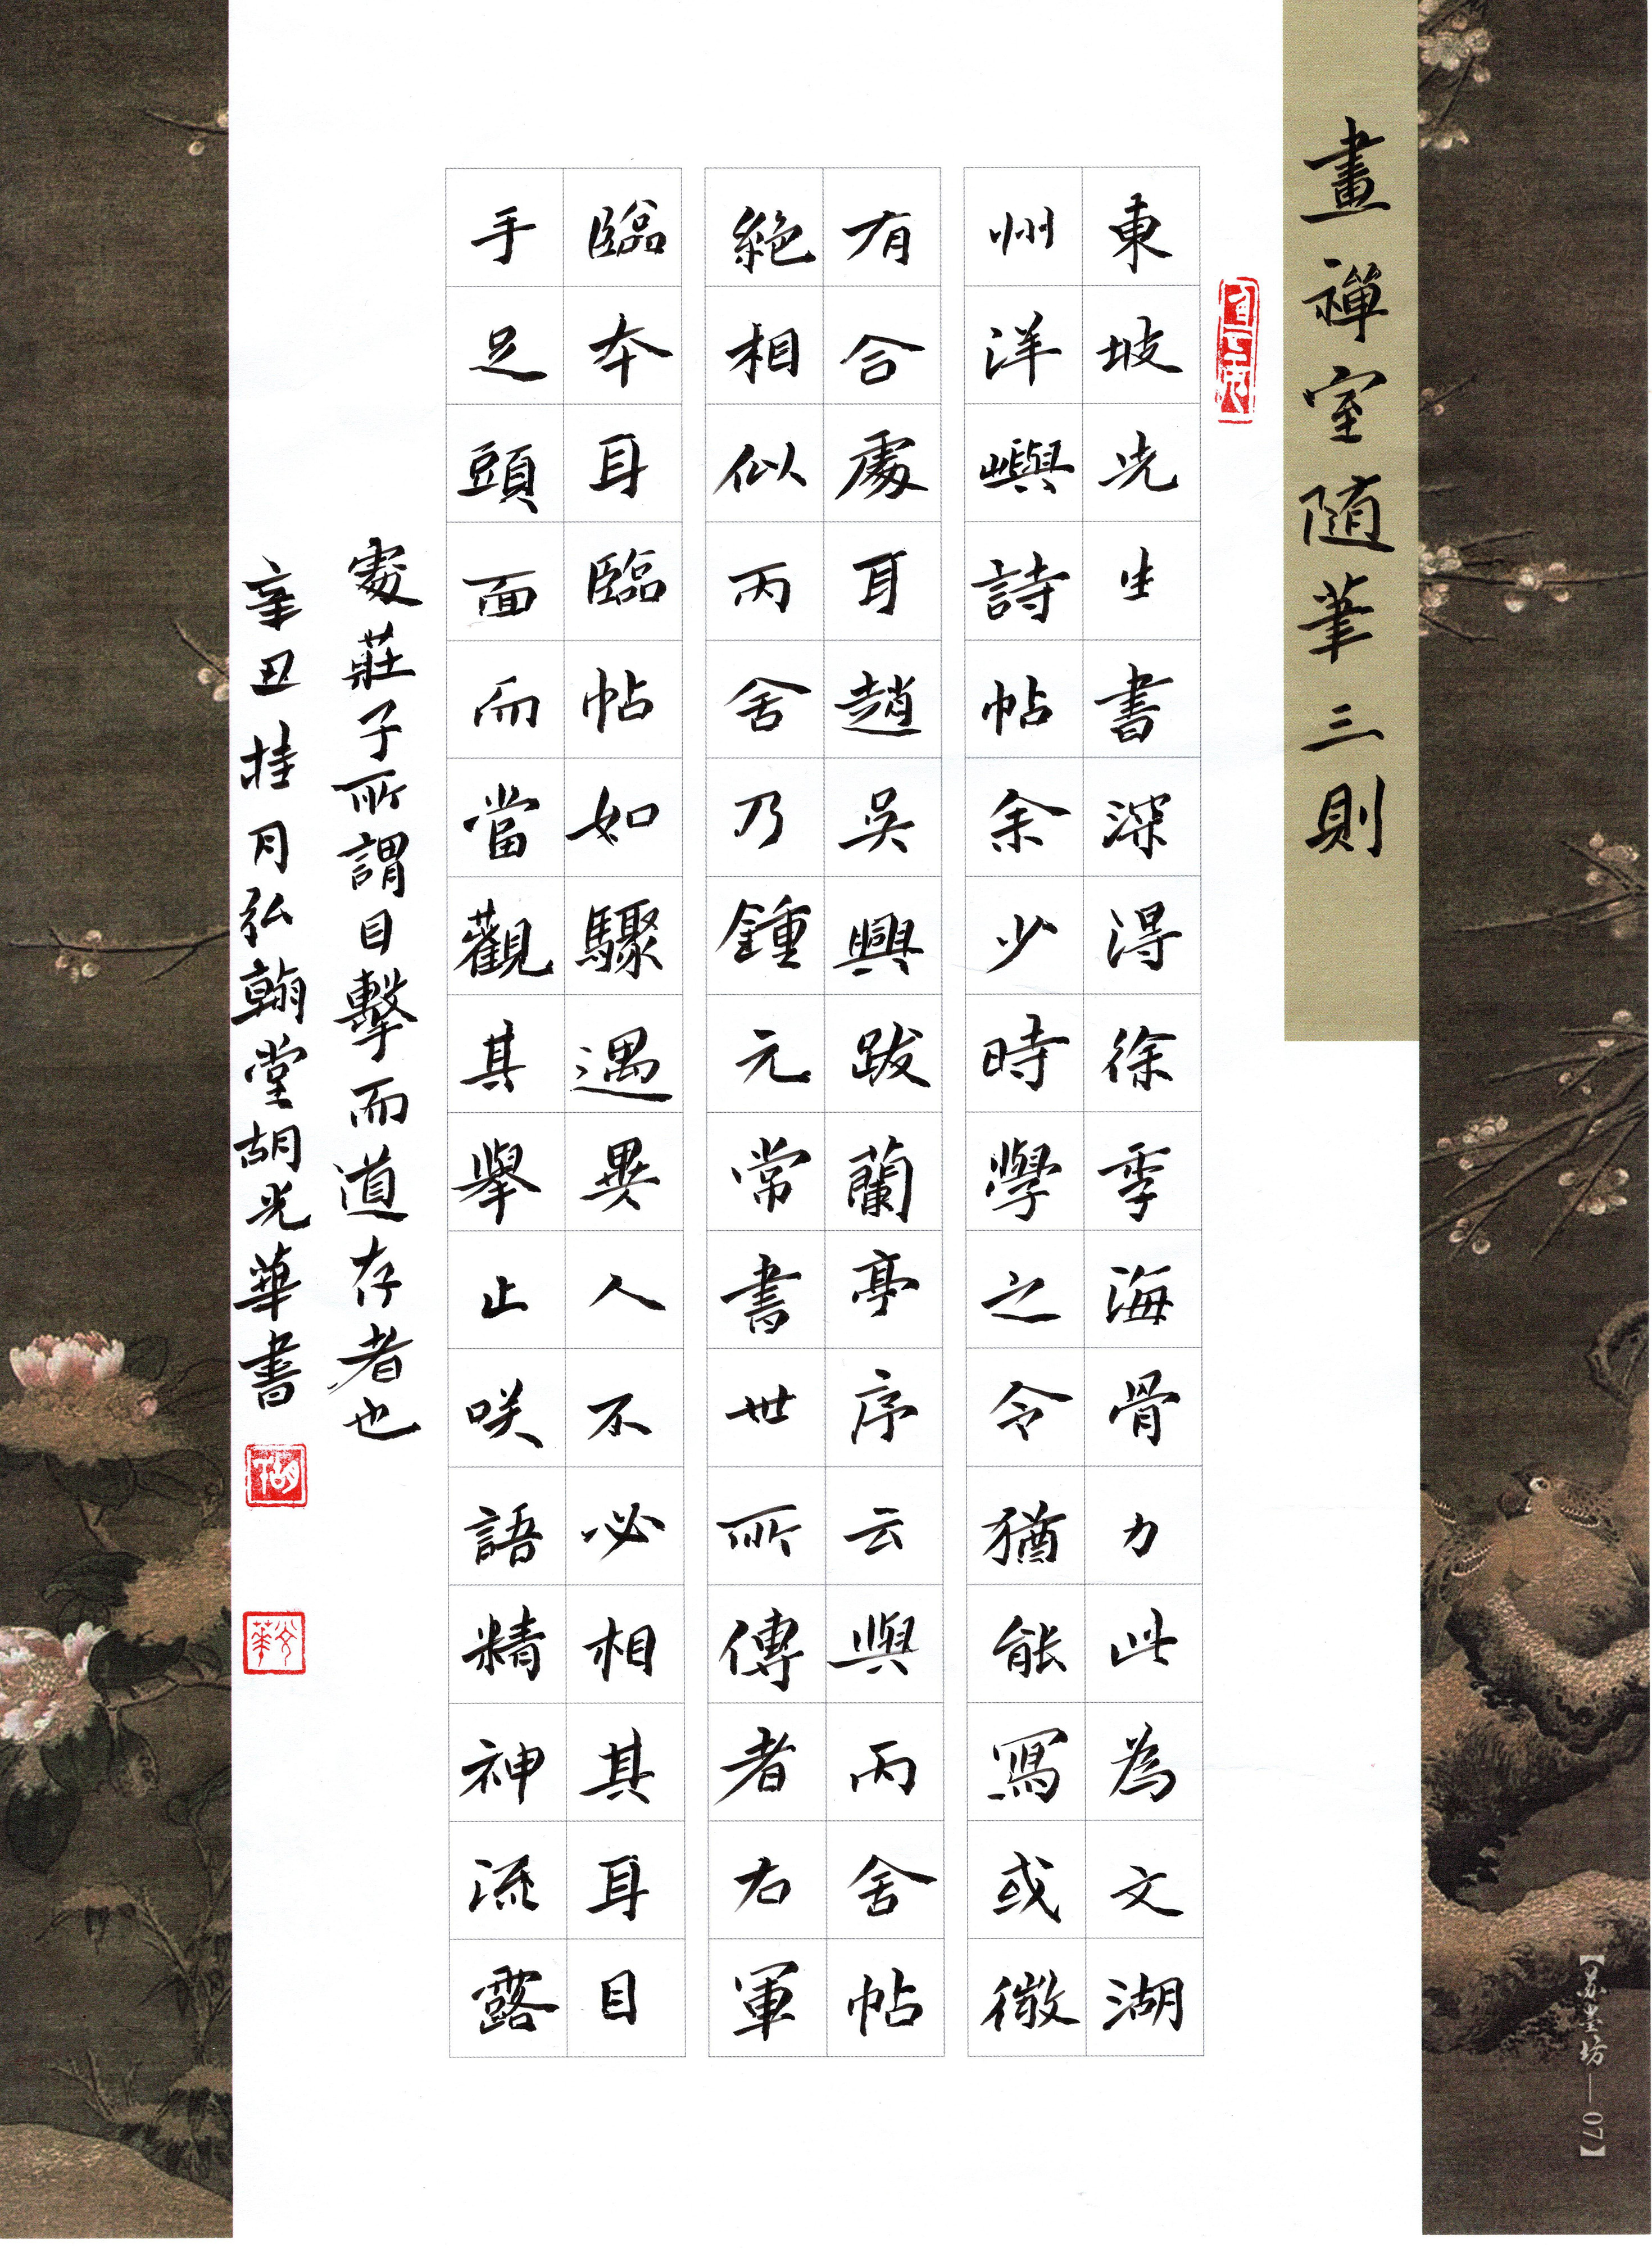 畫禪室随筆三則
東坡先生書深得徐季海骨力此為文湖
州洋嶼詩帖余少時學之令猶能寫或微
有合處耳趙吳興跋蘭亭序云與丙舍帖
絕相似丙舍乃鍾元常書世所傳者右軍
臨本耳臨帖如驟遇異人不必相其耳目
手足頭面而當觀其舉止咲語精神流露
處莊子所謂目擊而道存者也
辛丑桂月弘翰堂胡光華書
胡
光華
【苏墨坊—07】